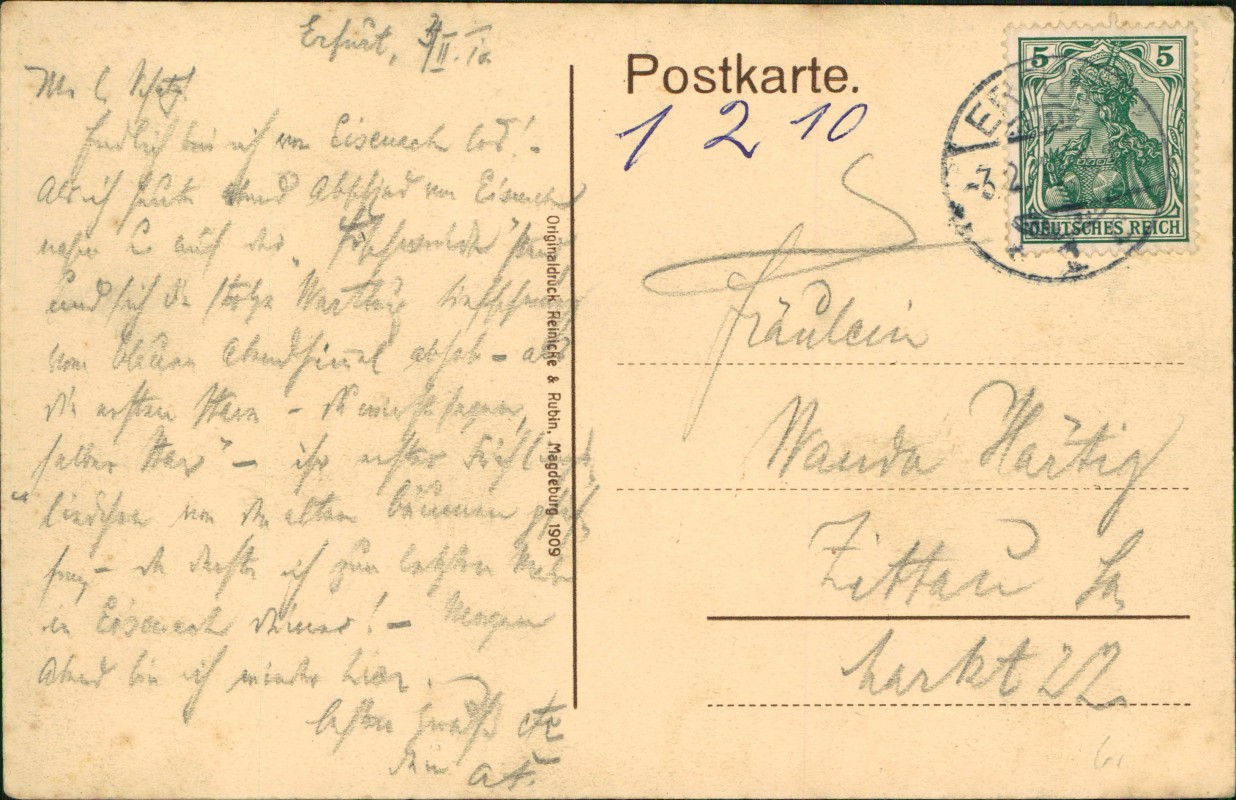 Erfurt, 3/II. 10.
M. l. Schatz!
Endlich bin ich von Eisenach los! –
Als ich heute Abend Abschied von Eisenach
nahm & auf der „
und sich die stolze Wartburg
vom blauen Abendhimmel abhob – als
die ersten Stare –
– ihr erstes Frühlings-
liedchen von den alten Bäumen
– da dachte ich zum letzten Male
in Eisenach Deiner! – Morgen
Abend bin ich wieder hier.
besten Gruß etc
Dein
Originaldruck Reinicke & Rubin, Magdeburg 1909
Postkarte.
1 2 10
5 5
DEUTSCHES REICH
-3.2
Fräulein
Wanda Härtig
Zittau Sa
Markt 22